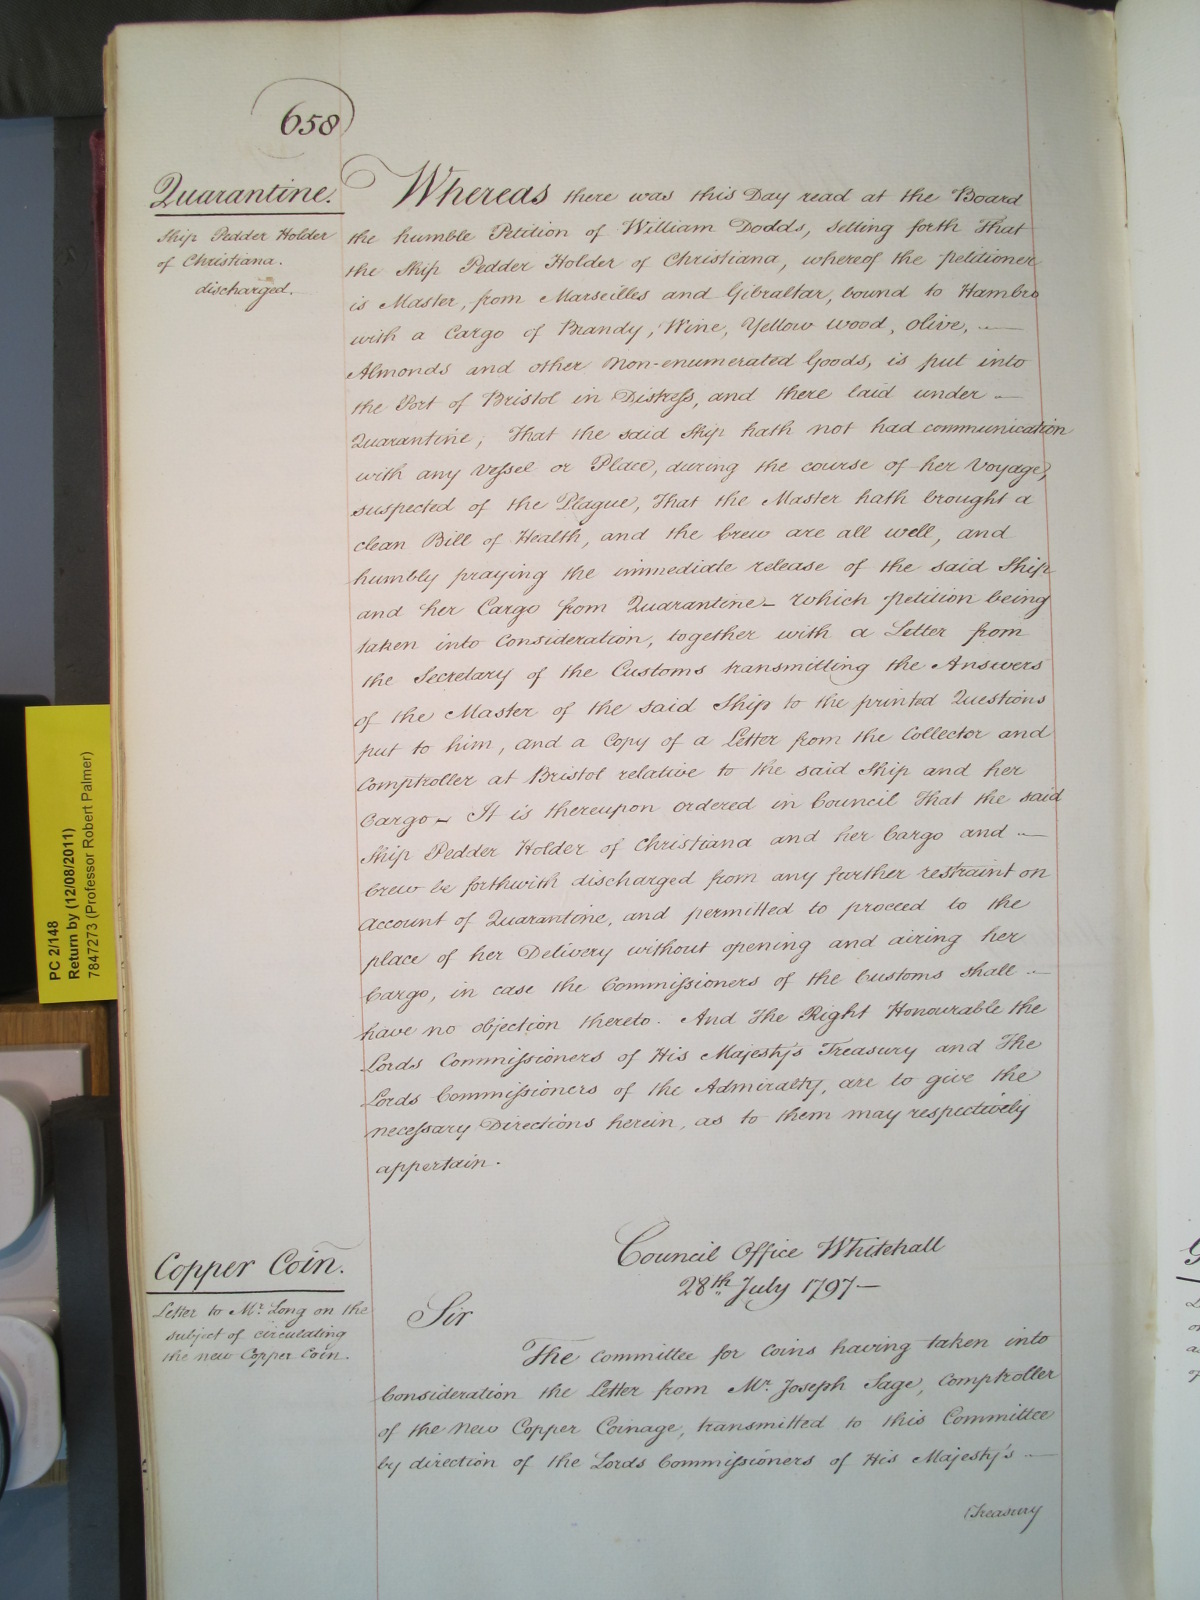 658
Quarantine.
Ship Pedder Holder
of Christiana.
discharged.
Whereas there was this Day read at the Board
the humble Petition of William Dodds, setting forth That
the Ship Pedder Holder of Christiana, whereof the petitioner
is Master, from Marseilles and Gibraltar, bound to Hambro
with a Cargo of Brandy, Wine, Yellow wood, olive, —
Almonds and other Non-enumerated Goods, is put into
the Port of Bristol in Distress, and there laid under —
Quarantine; That the said Ship hath not had communication
with any Vessel or Place, during the course of her Voyage,
suspected of the Plague, That the Master hath brought a
clean Bill of Health, and the Crew are all well, and
humbly praying the immediate release of the said Ship
and her Cargo from Quarantine — Which petition being
taken into Consideration, together with a Letter from
the Secretary of the Customs transmitting the Answers
of the Master of the said Ship to the printed Questions
put to him, and a Copy of a Letter from the Collector and
Comptroller at Bristol relative to the said Ship and her
Cargo — It is thereupon ordered in Council That the said
Ship Pedder Holder of Christiana and her Cargo and —
Crew be forthwith discharged from any further restraint on
Account of Quarantine, and permitted to proceed to the
place of her Delivery without opening and airing her
Cargo, in case the Commissioners of the Customs shall —
have no objection thereto. And The Right Honourable the
Lords Commissioners of His Majesty's Treasury and The
Lords Commissioners of the Admiralty, are to give the
necessary Directions herein, as to them may respectively
appertain.
Copper Coin.
Letter to Mr. Long on the
subject of circulating
the new Copper Coin.
Council Office Whitehall
28th July 1797 —
Sir
The Committee for Coins having taken into
Consideration the Letter from Mr. Joseph Sage, Comptroller
of the New Copper Coinage, transmitted to this Committee
by direction of the Lords Commissioners of His Majesty's —
Treasury
PC 2/148
Return by (12/08/2011)
7847273 (Professor Robert Palmer)